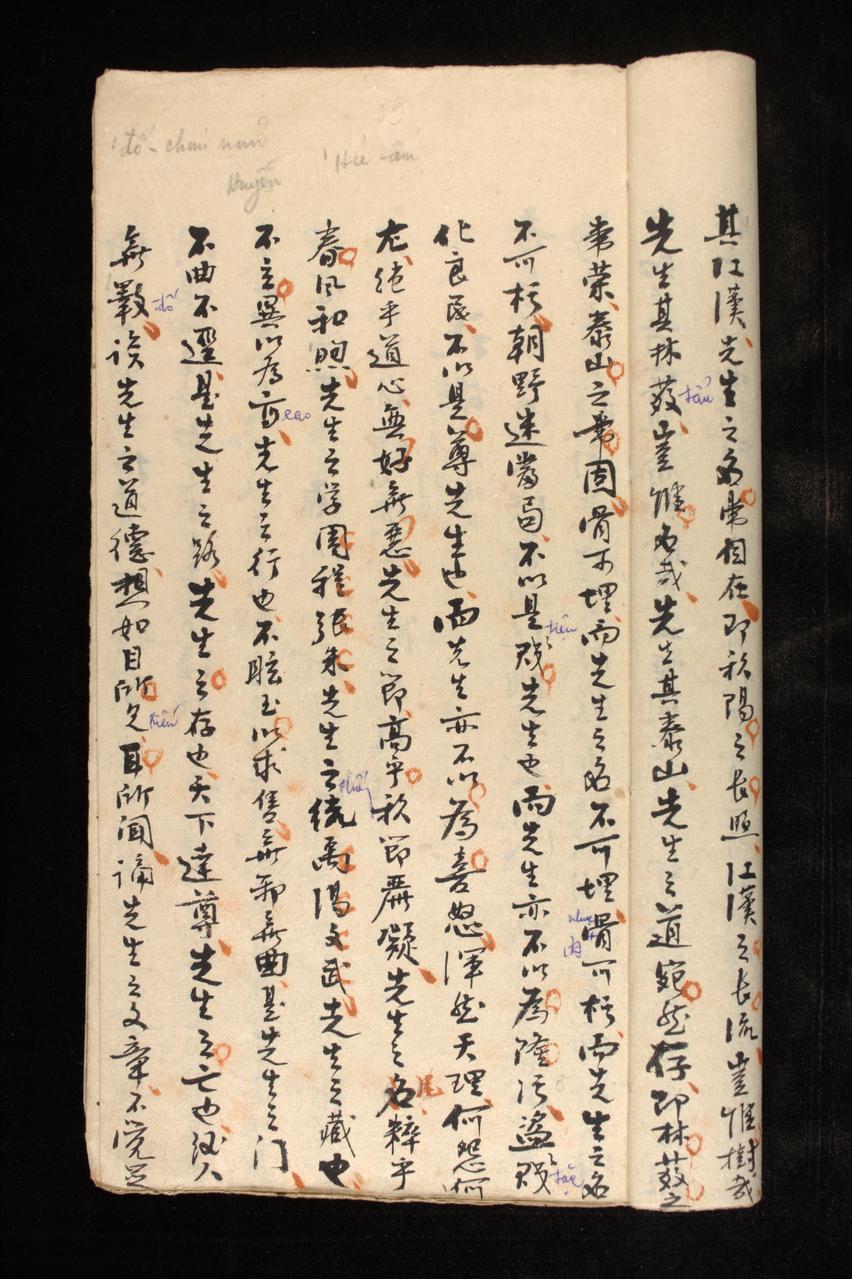 其江漢先生之名常相在即秋陽之長照江漢之長流豈惟樹哉
先生其林薮豈惟名哉先生其泰山先生之道宛然存即林薮之
常荣泰山之常固骨可埋而先生之名不可埋骨可朽而先生之名
不可朽朝野迷當局不以是賤先生也而先生亦不以為隆污盗賊
化良民不以是尊先生也而先生亦不以為喜怒渾然天理何怨何
尤绝乎道心無好無惡先生之節高乎秋節嚴凝先生之名粹乎
春風和煦先生之学周程張朱先生之统禹湯文武先生之藏也
不立異以為高先生之行也不眩玉以求售無邪無曲是先生之门
不曲不逕是先生之路先生之存也天下達尊先生之亡也後人
無斁談先生之道德想如目所見耳所聞誦先生之文章不覺足
đố
tẩu
cao
tiện
kiến
thống
nhục
肉
tặc
尾
đồ chán nản
Huyễn
Hú âm